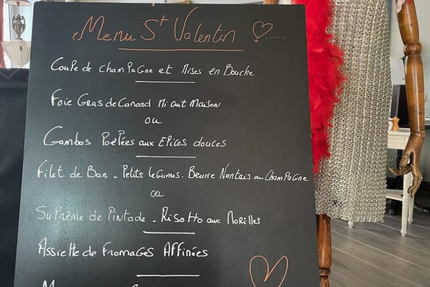 Menu St Valentin
Coupe de champagne et Mises en Bouche
Foie Gras de Canard Mi cuit Maison
ou
Gambas Poêlées aux Epices douces
Filet de Bar - Petits legumes. Beurre Nantais au Champagne
ou
Suprême de Pintade - Risotto aux Morilles
Assiette de Fromages Affinées